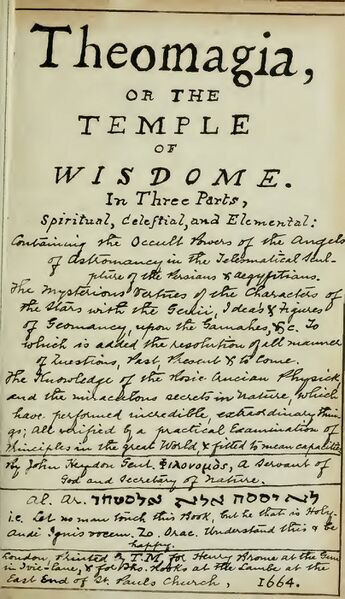 Theomagia,
OR THE
TEMPLE
OF
WISDOME.
In Three Parts,
Spiritual, Celestial, and Elemental:
Containing the Occult Powers of the Angels
of Astromancy in the Telesmatical Scul-
pture of the Persians & Aegyptians.
The Mysterious Vertues of the Characters of
the Stars with the Genii, Idea's & figures
of Geomancy, upon the Gamahes, &c. To
which is added the resolution of all manner
of Questions, Past, Present & to Come.
The Knowledge of the Rosie Crucian Physick,
and the miraculous secrets in Nature, which
have performed incredible, extraordinary thin-
gs; All verified by a practical Examination of
Principles in the great World, & fitted to mean capacities
By John Heydon Gent. Φιλονομος, A Servant of
God and Secretary of Nature.
Al. Ar. לא יססה אלא
i.e. Let no man touch this Book, but he that is Holy-
Audi Ignis vocem. Zo. Orac. Understand this & be
happy.
London, Printed by T.M. for Henry Brome at the Gun
in Ivie-Lane, & for Tho. Rooks at the Lambe at the
East End of St. Pauls Church, 1664.